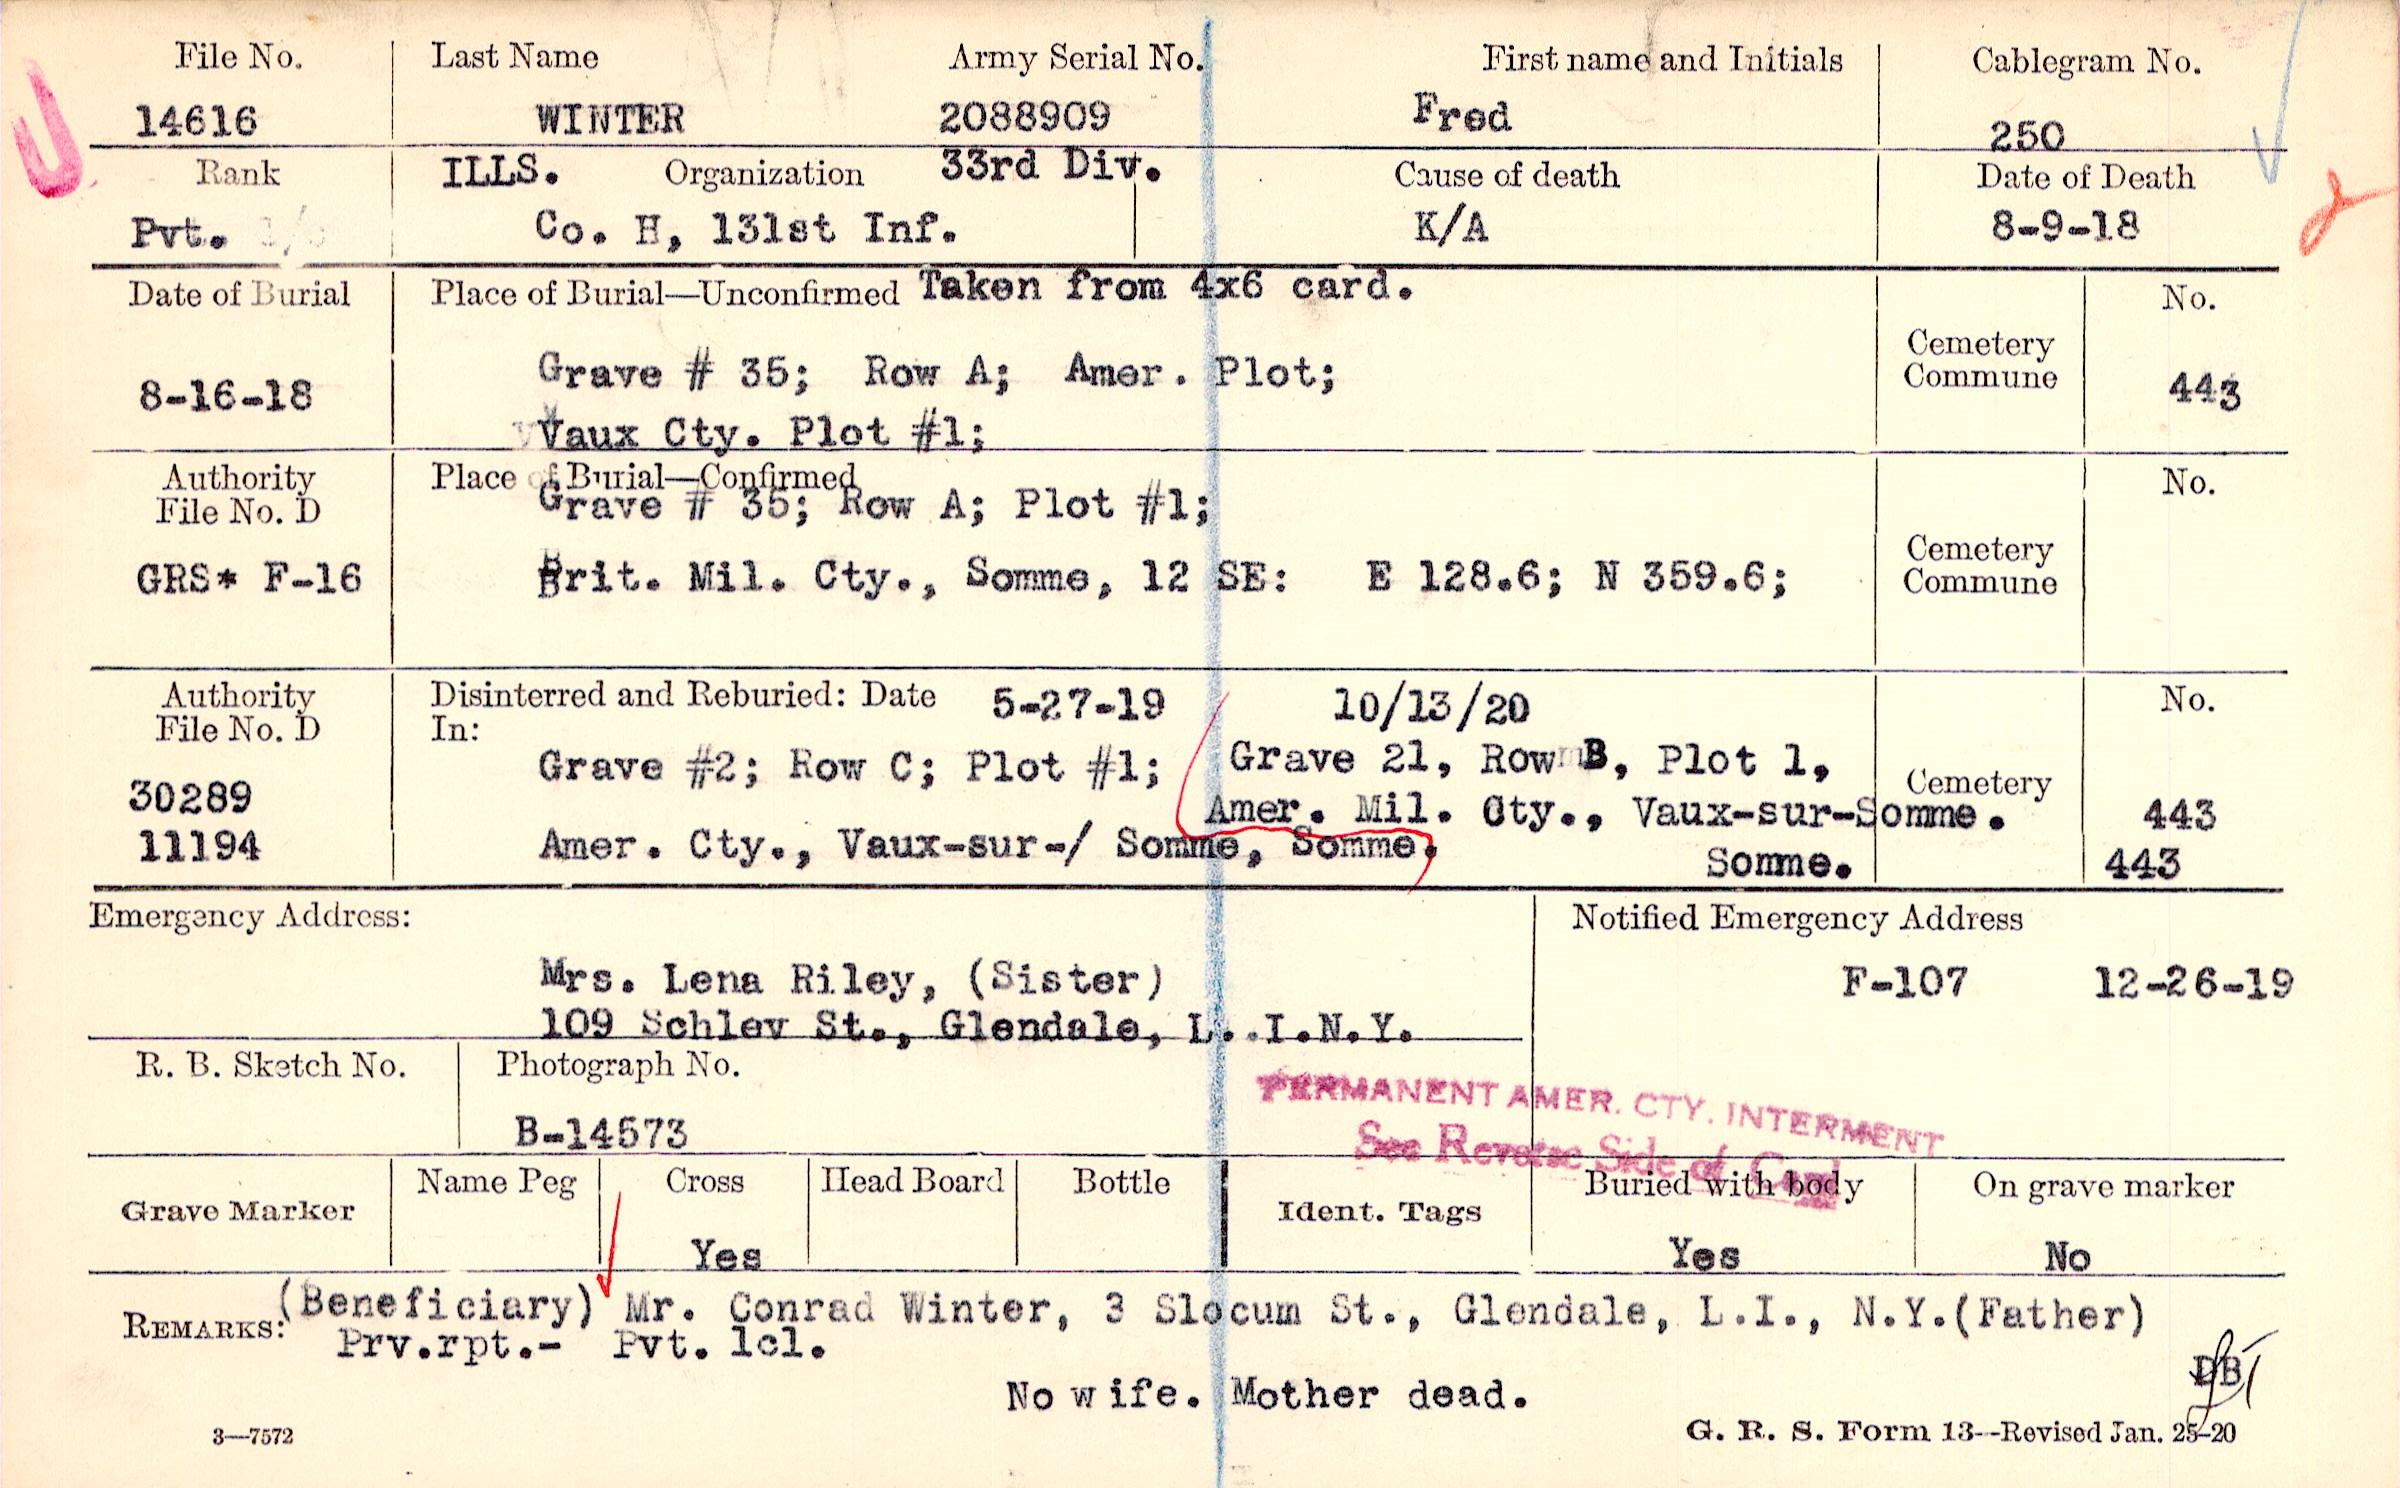 File No. Last Name Army Serial No. First name and Initials Cablegram No.
14616 WINTER 2088909 Fred 250
Rank ILLS. Organization 33rd Div. Cause of death Date of Death
Pvt. Co. H, 131st Inf. K/A 8-9-18
Date of Burial Place of Burial—Unconfirmed Taken from 4x6 card. No.
Cemetery
Commune
8-16-18 Grave # 35; Row A; Amer. Plot; 443
Vaux Cty. Plot #1;
Authority Place of Burial—Confirmed No.
File No. D Grave # 35; Row A; Plot #1;
Cemetery
Commune
GRS* F-16 Brit. Mil. Cty., Somme, 12 SE: E 128.6; N 359.6;
Authority Disinterred and Reburied: Date 5-27-19 10/13/20 No.
File No. D In:
Grave #2; Row C; Plot #1; Grave 21, Row B, Plot 1,
Cemetery
30289 Amer. Mil. Cty., Vaux-sur-Somme. 443
11194 Amer. Cty., Vaux-sur-/ Somme, Somme. Somme. 443
Emergency Address: Notified Emergency Address
Mrs. Lena Riley, (Sister) F-107 12-26-19
109 Schley St., Glendale, L..I.N.Y.
R. B. Sketch No. Photograph No.
B-14573
PERMANENT AMER. CTY. INTERMENT
See Reverse Side of Card
Grave Marker Name Peg Cross Head Board Bottle Ident. Tags Buried with body On grave marker
Yes Yes No
REMARKS: (Beneficiary) Mr. Conrad Winter, 3 Slocum St., Glendale, L.I., N.Y.(Father)
Prv.rpt.- Pvt. lcl.
DB
No wife. Mother dead.
3—7572 G. R. S. Form 13--Revised Jan. 25-20